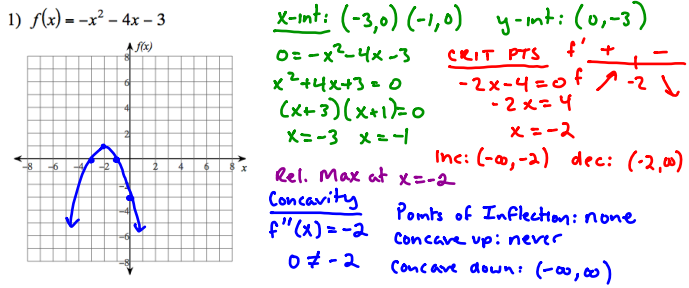 1) f(x) = −x² − 4x − 3
f(x)
8
6
4
2
-8 -6 -4 -2 2 4 6 8 x
-2
-4
-6
-8
x-int: (-3,0) (-1,0)
y-int: (0,-3)
0 = -x²-4x-3
x²+4x+3 = 0
(x+3)(x+1)=0
x=-3 x=-1
CRIT PTS
-2x-4=0
-2x=4
x=-2
f' + −
f ↗ -2 ↘
Inc: (-∞,-2) dec: (-2,∞)
Rel. Max at x=-2
Concavity
f"(x) = -2
0 ≠ -2
Points of Inflection: none
Concave up: never
Concave down: (-∞,∞)